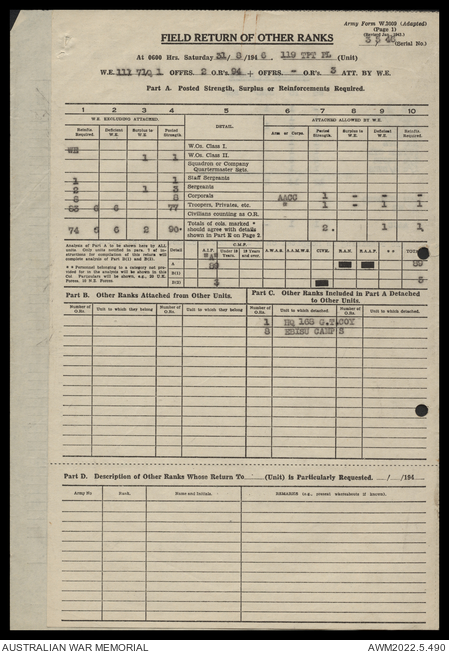 Army Form W.3009 (Adapted)
(Page 1)
FIELD RETURN OF OTHER RANKS
(Serial No.)
At 0600 Hrs. Saturday 31/ 8 /194 6. 119 TPT PL (Unit)
W.E. OFFRS. 2 O.R's. 94 + OFFRS. - O.R's. 3 ATT. BY W.E.
Part A. Posted Strength, Surplus or Reinforcements Required.
1 2 3 4 5 6 7 8 9 10
W.E. EXCLUDING ATTACHED. DETAIL ATTACHED ALLOWED BY W.E.
Reinfts. Required. Deficient W.E. Surplus to W.E. Posted Strength. Arm or Corps. Posted Strength. Surplus to W.E. Deficient W.E. Reinfts. Required.
W.Os. Class I.
1 1 W.Os. Class II.
Squadron or Company
Quartermaster Sgts.
1 1 Staff Sergeants
2 1 3 Sergeants
8 8 Corporals AACC 1 - - -
6 6 77 Troopers, Privates, etc. " 1 - 1 1
Civilians counting as O.R.
74 6 6 2 90 Totals of cols. marked *
should agree with details
shown in Part E on Page 2. 2 1 1
Analysis of Part A to be shown here by ALL
units. Only units notified in para. 7 of In-
structions for compilation of this return will
complete analysis of Part B(1) and B(2).
** Personnel belonging to a category not pro-
vided for in the analysis will be shown in this
Col. Particulars will be shown, e.g., 20 U.K.
Forces, 10 N.Z. Forces.
Detail A.I.F. C.M.F. Under 19 Years 19 Years and over. A.W.A.S. A.A.M.W.S. CIVS. R.A.N. R.A.A.F. ** TOTAL
A 89 89
B(1)
B(2) 3 3
Part B. Other Ranks Attached from Other Units.
Part C. Other Ranks Included in Part A Detached
to Other Units.
Number of O.Rs. Unit to which they belong Number of O.Rs. Unit to which they belong Number of O.Rs. Unit to which detached. Number of O.Rs. Unit to which detached.
1 HQ 168 G.T.COY
8 EBISU CAMP S
Part D. Description of Other Ranks Whose Return To (Unit) is Particularly Requested. / /194
Army No. Rank. Name and Initials. REMARKS (e.g., present whereabouts if known).
AUSTRALIAN WAR MEMORIAL AWM2022.5.490